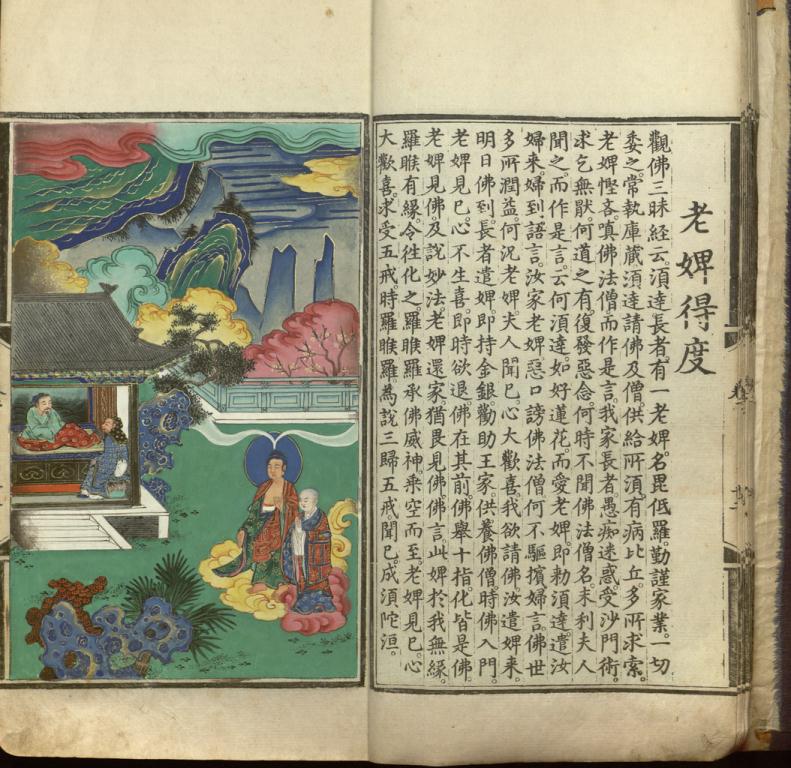 老婢得度
觀佛三昧經云。須達長者。有一老婢。名毘低羅。勤謹家業。一切
委之。常執庫藏。須達請佛及僧。供給所須。有病比丘。多所求索。
老婢慳吝。嗔佛法僧。而作是言。我家長者。愚痴迷惑。受沙門術。
求乞無厭。何道之有。復發惡念。何時不聞佛法僧名。末利夫人
聞之。而作是言。云何須達。如好蓮花。而愛老婢。即勅須達。遣汝
婦來。婦到語言。汝家老婢。惡口謗佛法僧。何不驅擯。婦言。佛世
多所潤益。何況老婢。夫人聞已。心大歡喜。我欲請佛。汝遣婢來。
明日佛到。長者遣婢。即持金銀。勸助王家。供養佛僧。時佛入門。
老婢見已。心不生喜。即時欲退。佛在其前。佛舉十指。化皆是佛。
老婢見佛。及說妙法。老婢還家。猶畏見佛。佛言。此婢於我無緣。
羅睺有緣。令徃化之。羅睺羅承佛威神。乘空而至。老婢見已。心
大歡喜。求受五戒。時羅睺羅。為說三歸五戒。聞已。成須陀洹。